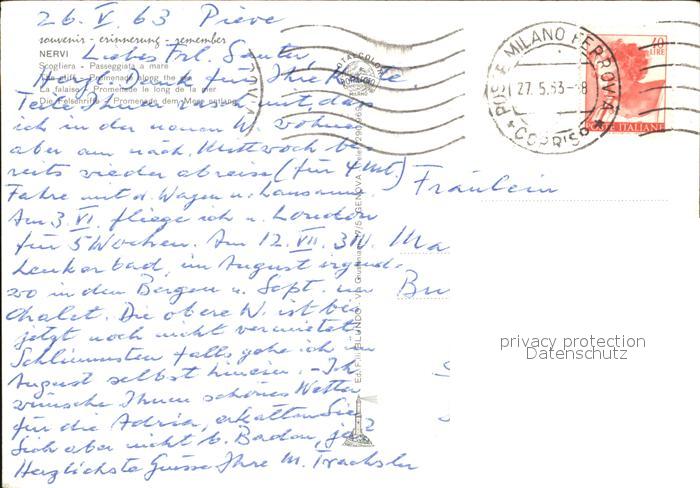 26. V. 63 Pieve
souvenir - erinnerung - remember
NERVI
Scogliera - Passeggiata a mare
The cliff - Promenade along the sea
La falaise - Promenade le long de la mer
Die Felsenriffe - Promenade dem Meer entlang
Liebes Frl. Sauter,
Herzl. Dank für Ihre Karte.
Teile Ihnen rasch mit, dass
ich in der neuen W. wohne
aber am näch. Mittwoch be-
reits wieder abreise (für 4 Mt.)
Fahre mit d. Wagen n. Lausanne.
Am 3. VI. fliege ich n. London
für 5 Wochen. Am 12. VII.
Leukerbad, im August irgend-
wo in den Bergen u. Sept. im
Chalet. Die obere W. ist bis
jetzt noch nicht vermietet.
Schlimmsten Falls gehe ich im
August selbst hinein. - Ich
wünsche Ihnen schönes Wetter
für die Adria, erkälten Sie
sich aber nicht b. Baden,
Herzlichste Grüsse Ihre M. Trachsler
VITALCOLOR
MILANO
Ed. F.lli BLUNDO - Via Giustiniani, GENOVA
POSTE MILANO FERROVIA
27.5.63 - 8
* CORRISP. *
40 LIRE
POSTE ITALIANE
Fräulein
Ma
Bu
privacy protection
Datenschutz